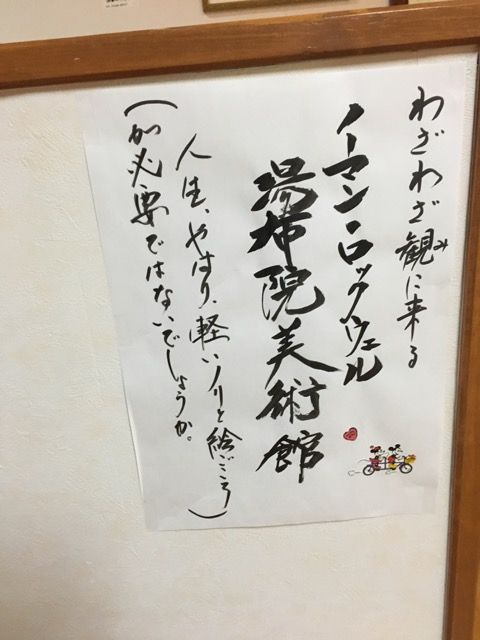 わざわざ観に来る
み
ノーマン・ロックウェル
湯布院美術館
人生、やはり、軽いノリと絵ごころ)
(が必要ではないでしょうか。